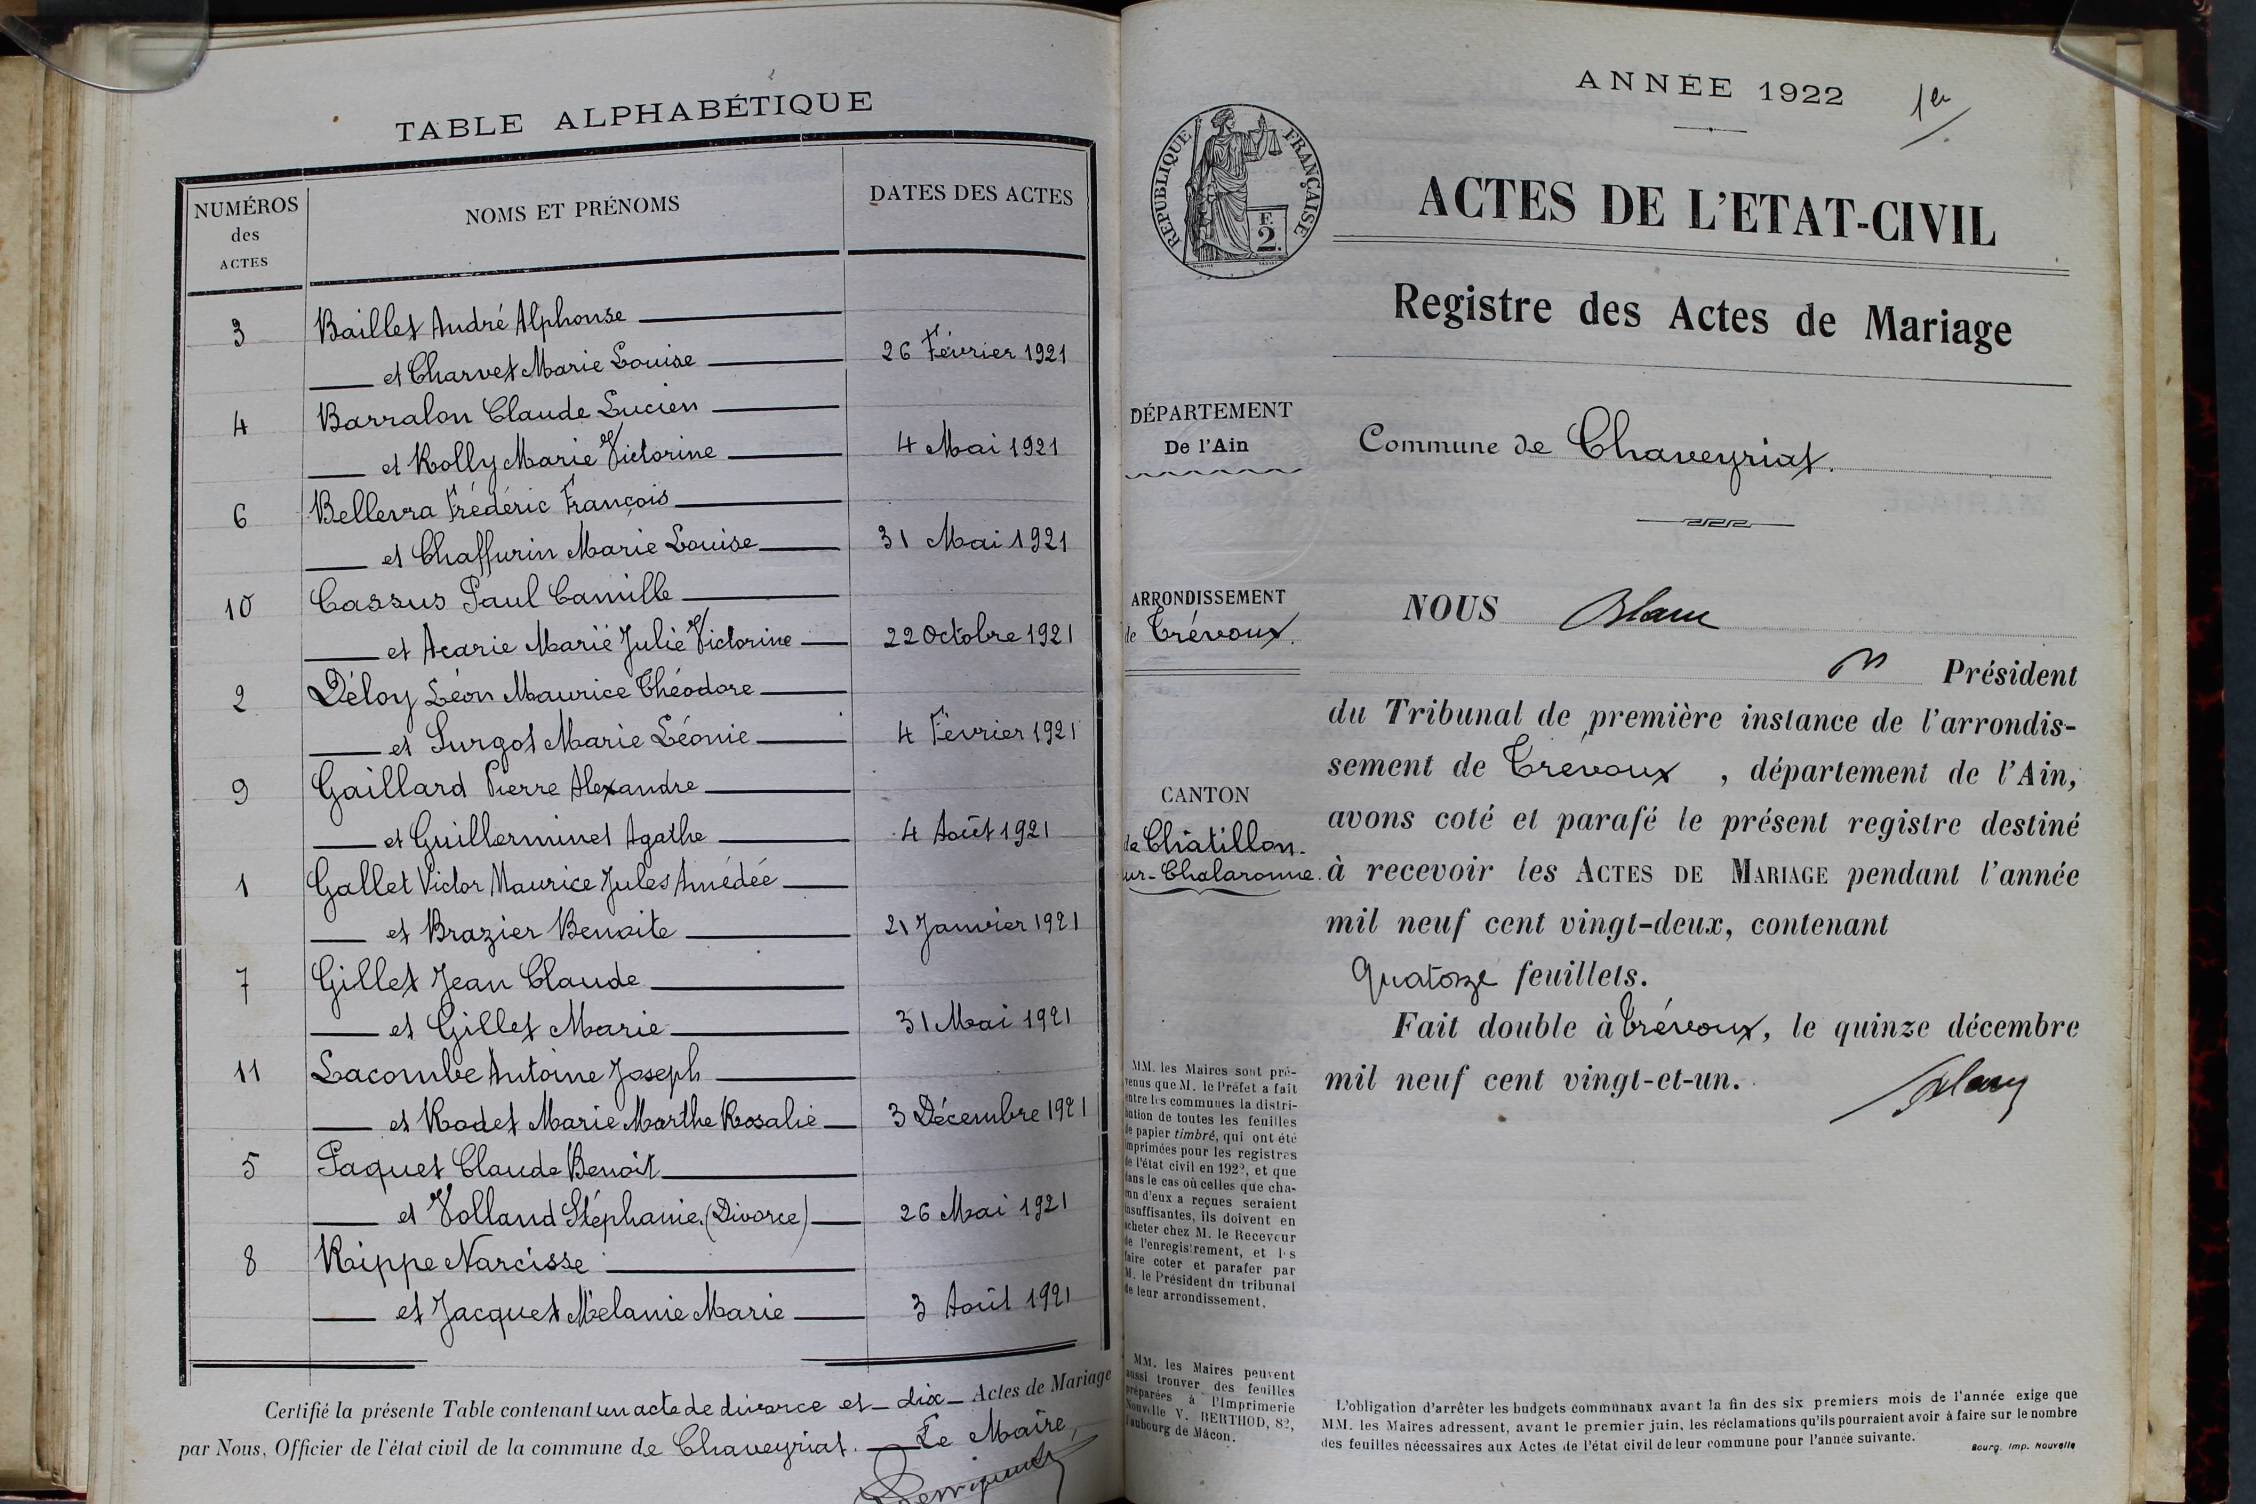 TABLE ALPHABÉTIQUE
NUMÉROS des ACTES
NOMS ET PRÉNOMS
DATES DES ACTES
3 Baillet André Alphonse
et Charvet Marie Louise 26 Février 1921
4 Barralon Claude Lucien
et Rolly Marie Victorine 4 Mai 1921
6 Bellevra Frédéric François
et Chaffurin Marie Louise 31 Mai 1921
10 Cassus Paul Camille
et Acarie Marie Julie Victorine 22 Octobre 1921
2 Déloy Léon Maurice Théodore
et Surgot Marie Léonie 4 Février 1921
9 Gaillard Pierre Alexandre
et Guillerminet Agathe 4 Août 1921
1 Gallet Victor Maurice Jules Amédée
et Brazier Benoite 21 Janvier 1921
7 Gillet Jean Claude
et Gillet Marie 31 Mai 1921
11 Lacombe Antoine Joseph
et Rodet Marie Marthe Rosalie 3 Décembre 1921
5 Paquet Claude Benoit
et Volland Stéphanie (Divorce) 26 Mai 1921
8 Rippe Narcisse
et Jacquet Mélanie Marie 3 Août 1921
Certifié la présente Table contenant un acte de divorce et dix Actes de Mariage
par Nous, Officier de l'état civil de la commune de Chaveyriat. Le Maire,
ANNÉE 1922 1er
REPUBLIQUE FRANÇAISE
F.
2.
ACTES DE L'ETAT-CIVIL
Registre des Actes de Mariage
DÉPARTEMENT
De l'Ain
Commune de Chaveyriat.
ARRONDISSEMENT
de Trévoux.
CANTON
de Châtillon-
ur-Chalaronne.
NOUS Blanc
Président
du Tribunal de première instance de l'arrondis-
sement de Trévoux, département de l'Ain,
avons coté et parafé le présent registre destiné
à recevoir les ACTES DE MARIAGE pendant l'année
mil neuf cent vingt-deux, contenant
Quatorze feuillets.
Fait double à Trévoux, le quinze décembre
mil neuf cent vingt-et-un.
Blanc
MM. les Maires sont pré-
venus que M. le Préfet a fait
entre les communes la distri-
bution de toutes les feuilles
de papier timbré, qui ont été
imprimées pour les registres
de l'état civil en 1922, et que
dans le cas où celles que cha-
un d'eux a reçues seraient
insuffisantes, ils doivent en
acheter chez M. le Receveur
de l'enregistrement, et les
faire coter et parafer par
M. le Président du tribunal
de leur arrondissement.
MM. les Maires peuvent
aussi trouver des feuilles
préparées à l'Imprimerie
Nouvelle V. BERTHOD, 82,
faubourg de Mâcon.
L'obligation d'arrêter les budgets communaux avant la fin des six premiers mois de l'année exige que
MM. les Maires adressent, avant le premier juin, les réclamations qu'ils pourraient avoir à faire sur le nombre
des feuilles nécessaires aux Actes de l'état civil de leur commune pour l'année suivante.
Bourg. Imp. Nouvelle